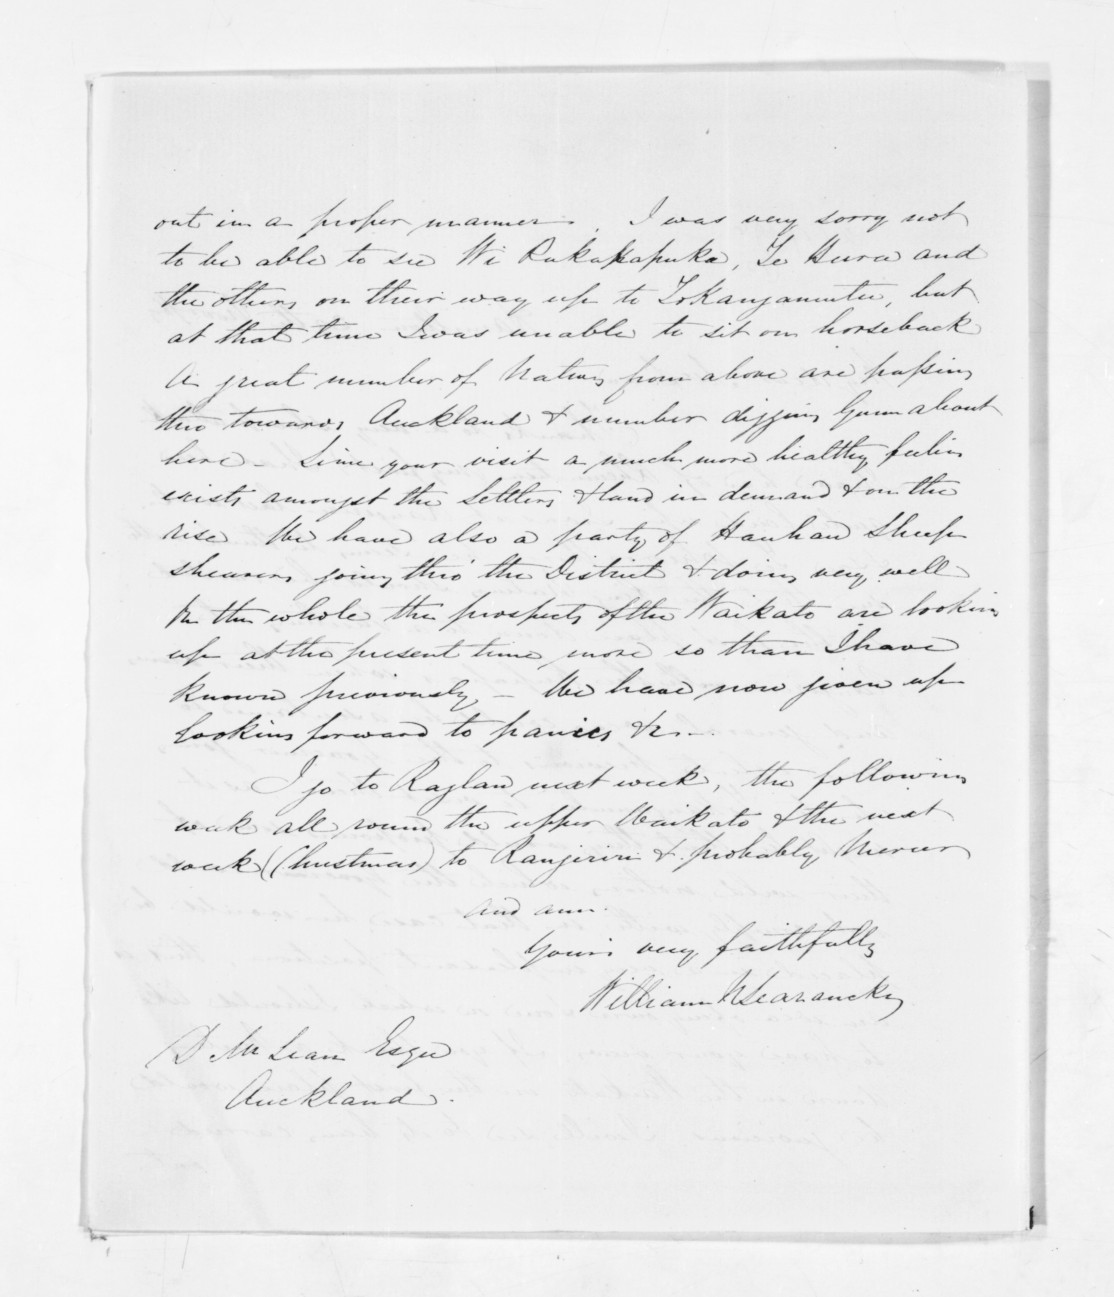 out in a proper manner. I was very sorry not
to be able to see Wi Pukapapuka, Te Hura and
the others on their way up to Tokangamutu, but
at that time I was unable to sit on horseback
A great number of Natives from above are passing
thro towards Auckland & number digging Gum about
here - Since your visit a much more healthy feeling
exists amongst the Settlers & land in demand & on the
rise We have also a party of Hauhau Sheep
shearers going thro' the District & doing very well
On the whole the prospects of the Waikato are looking
up at the present time more so than I have
known previously - We have now given up
looking forward to panics &c -
I go to Raglan next week, the following
week all round the upper Waikato & the next
week (Christmas) to Rangiriri & probably Mercer
and am
Yours very faithfully
William N Searancke
D McLean Esqre
Auckland.